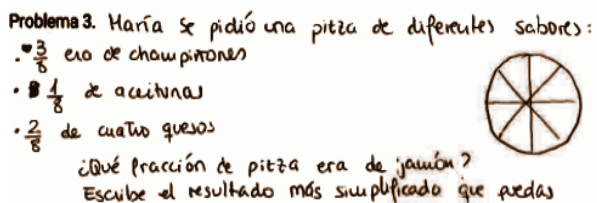 Problema 3. María se pidió una pitza de diferentes sabores:
• 3/8 era de champiñones
• 1/8 de aceitunas
• 2/8 de cuatro quesos
¿Qué fracción de pitza era de jamón?
Escribe el resultado más simplificado que puedas